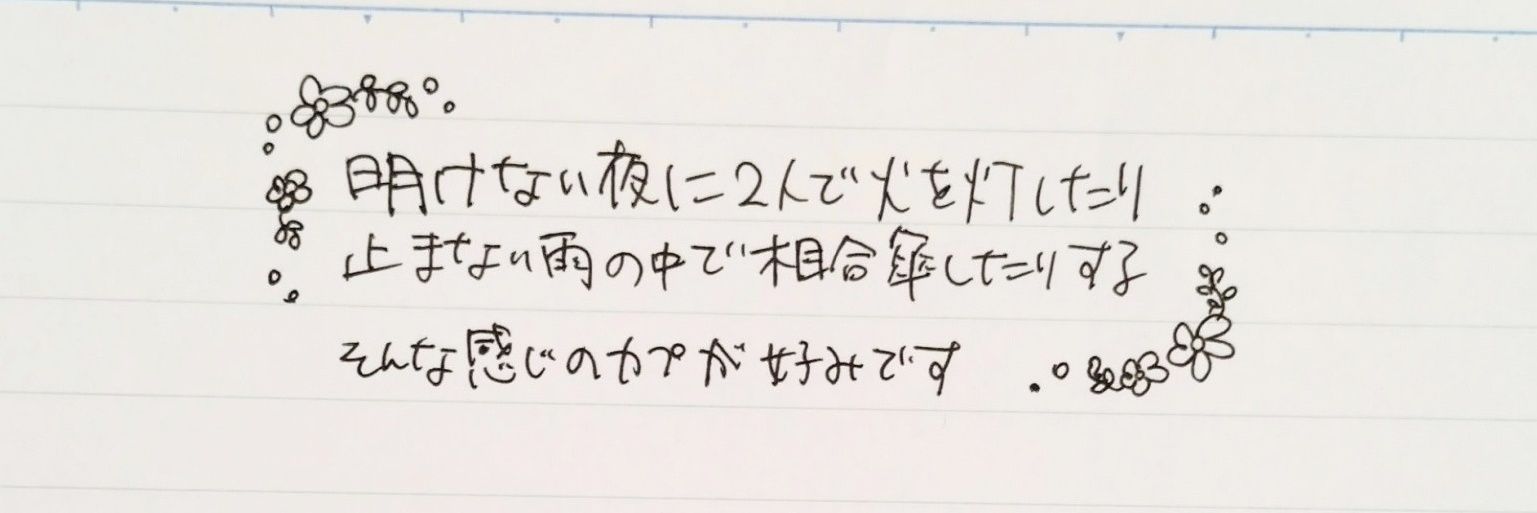 明けない夜に2人で火を灯したり
止まない雨の中で相合傘したりする
そんな感じのカプが好みです